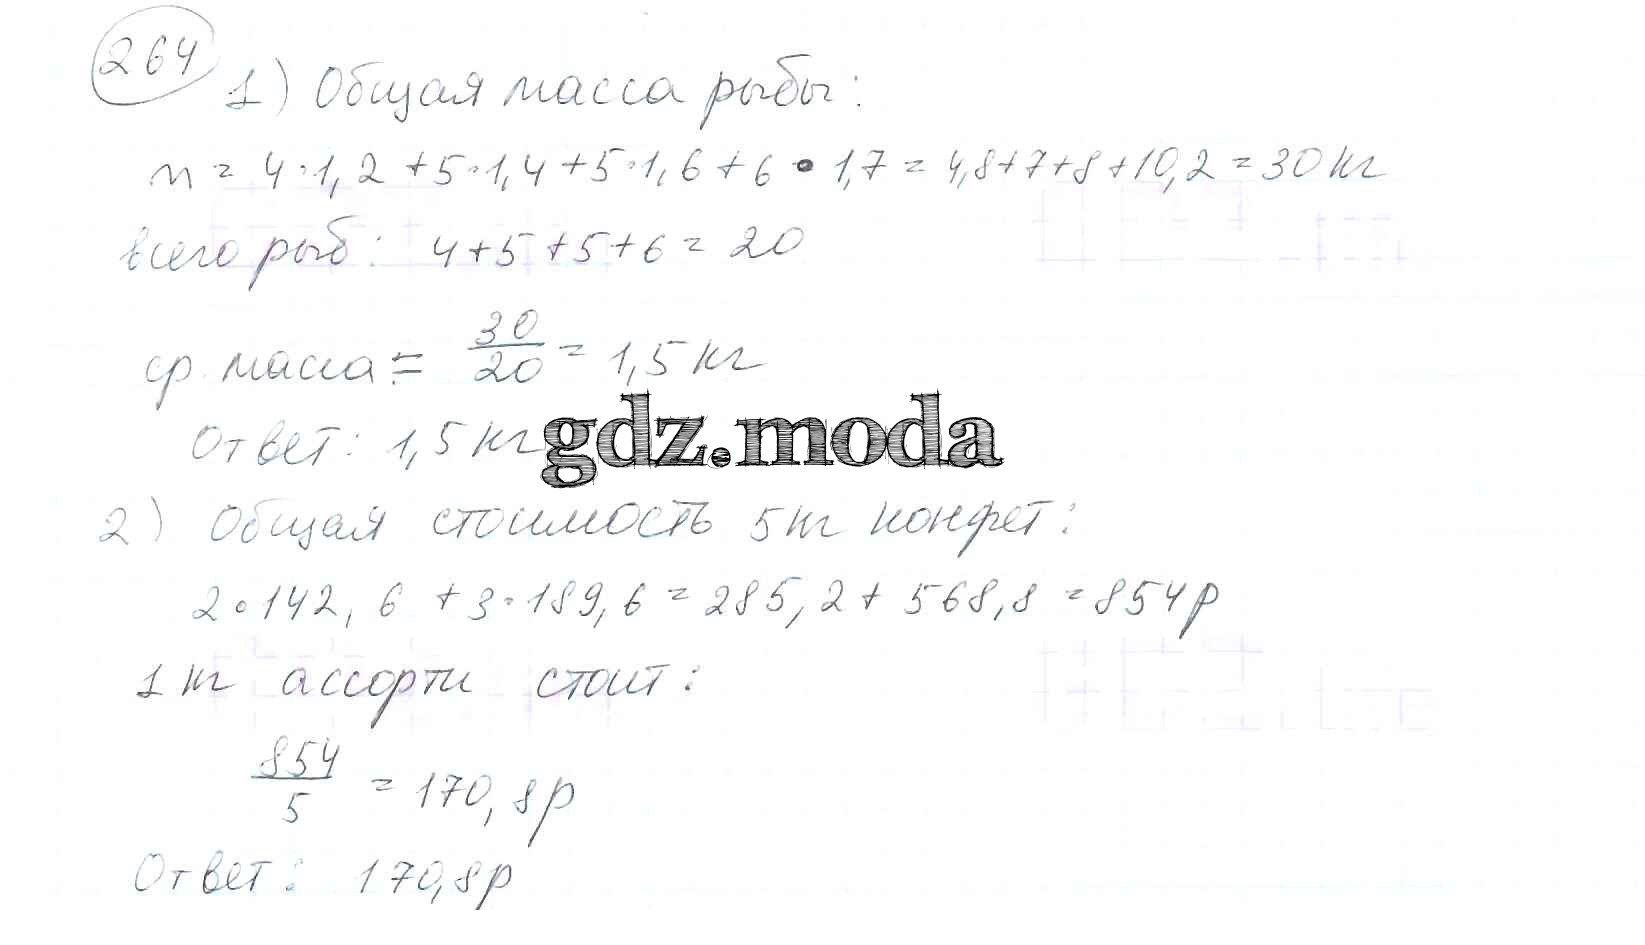 264
1) Общая масса рыбы:
m = 4·1,2 + 5·1,4 + 5·1,6 + 6·1,7 = 4,8+7+8+10,2 = 30 кг
всего рыб: 4+5+5+6 = 20
ср. масса = 30/20 = 1,5 кг
Ответ: 1,5 кг
gdz.moda
2) Общая стоимость 5 кг конфет:
2·142,6 + 3·189,6 = 285,2 + 568,8 = 854 р
1 кг ассорти стоит:
854/5 = 170,8 р
Ответ: 170,8 р